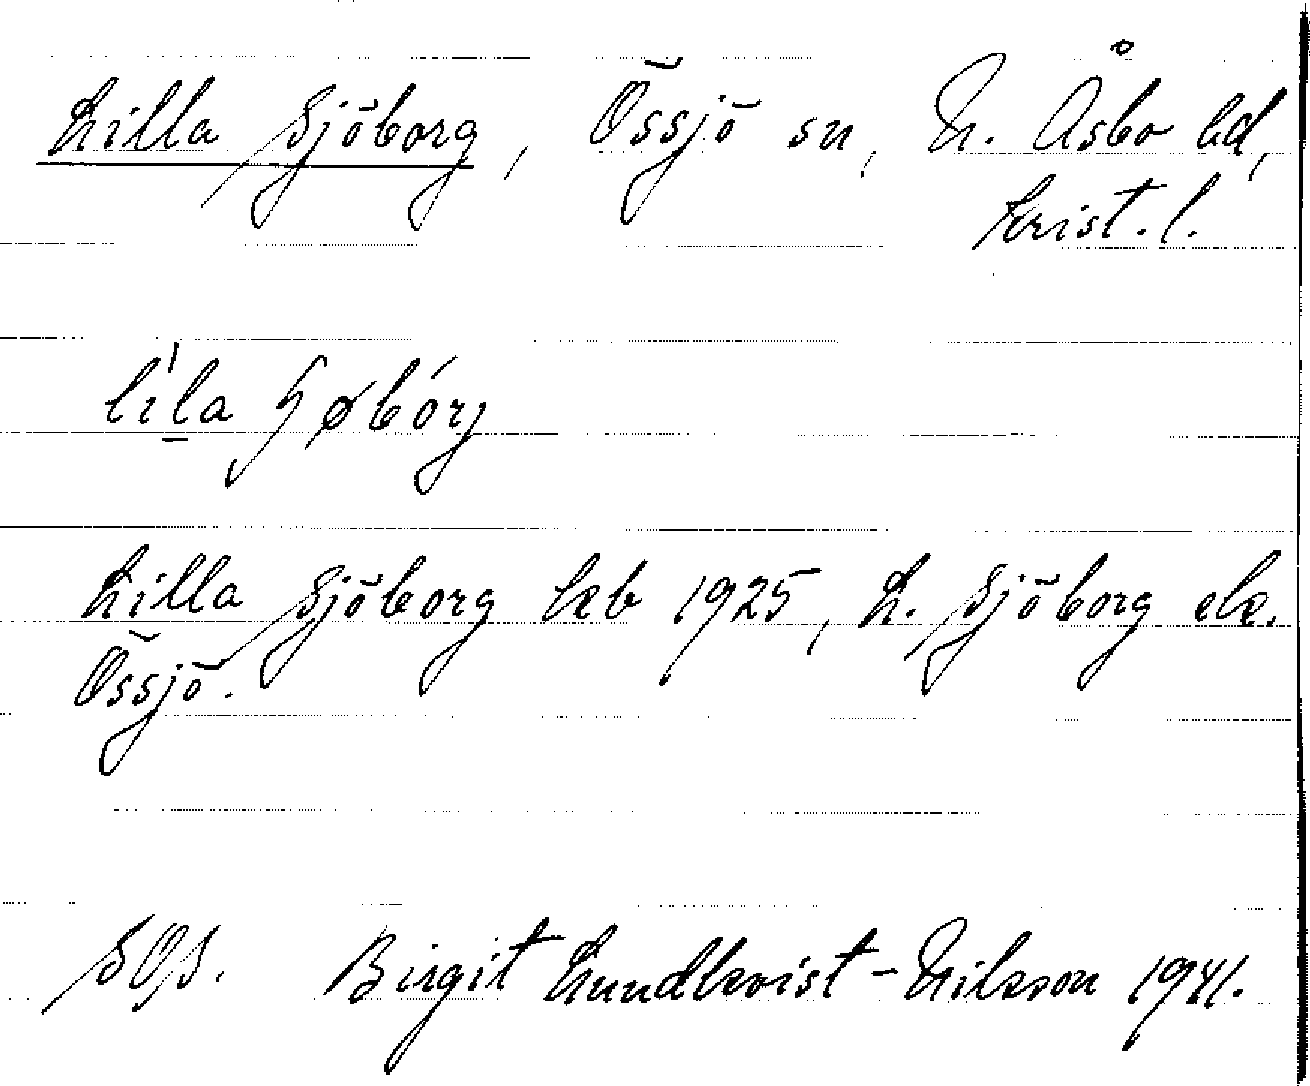 Lilla Sjöborg, Össjö sn, N. Åsbo hd,
Krist. l.
Lilla Sjöborg kb 1925, L. Sjöborg ek.
Össjö.
Birgit Lundkvist-Nilsson 1941.